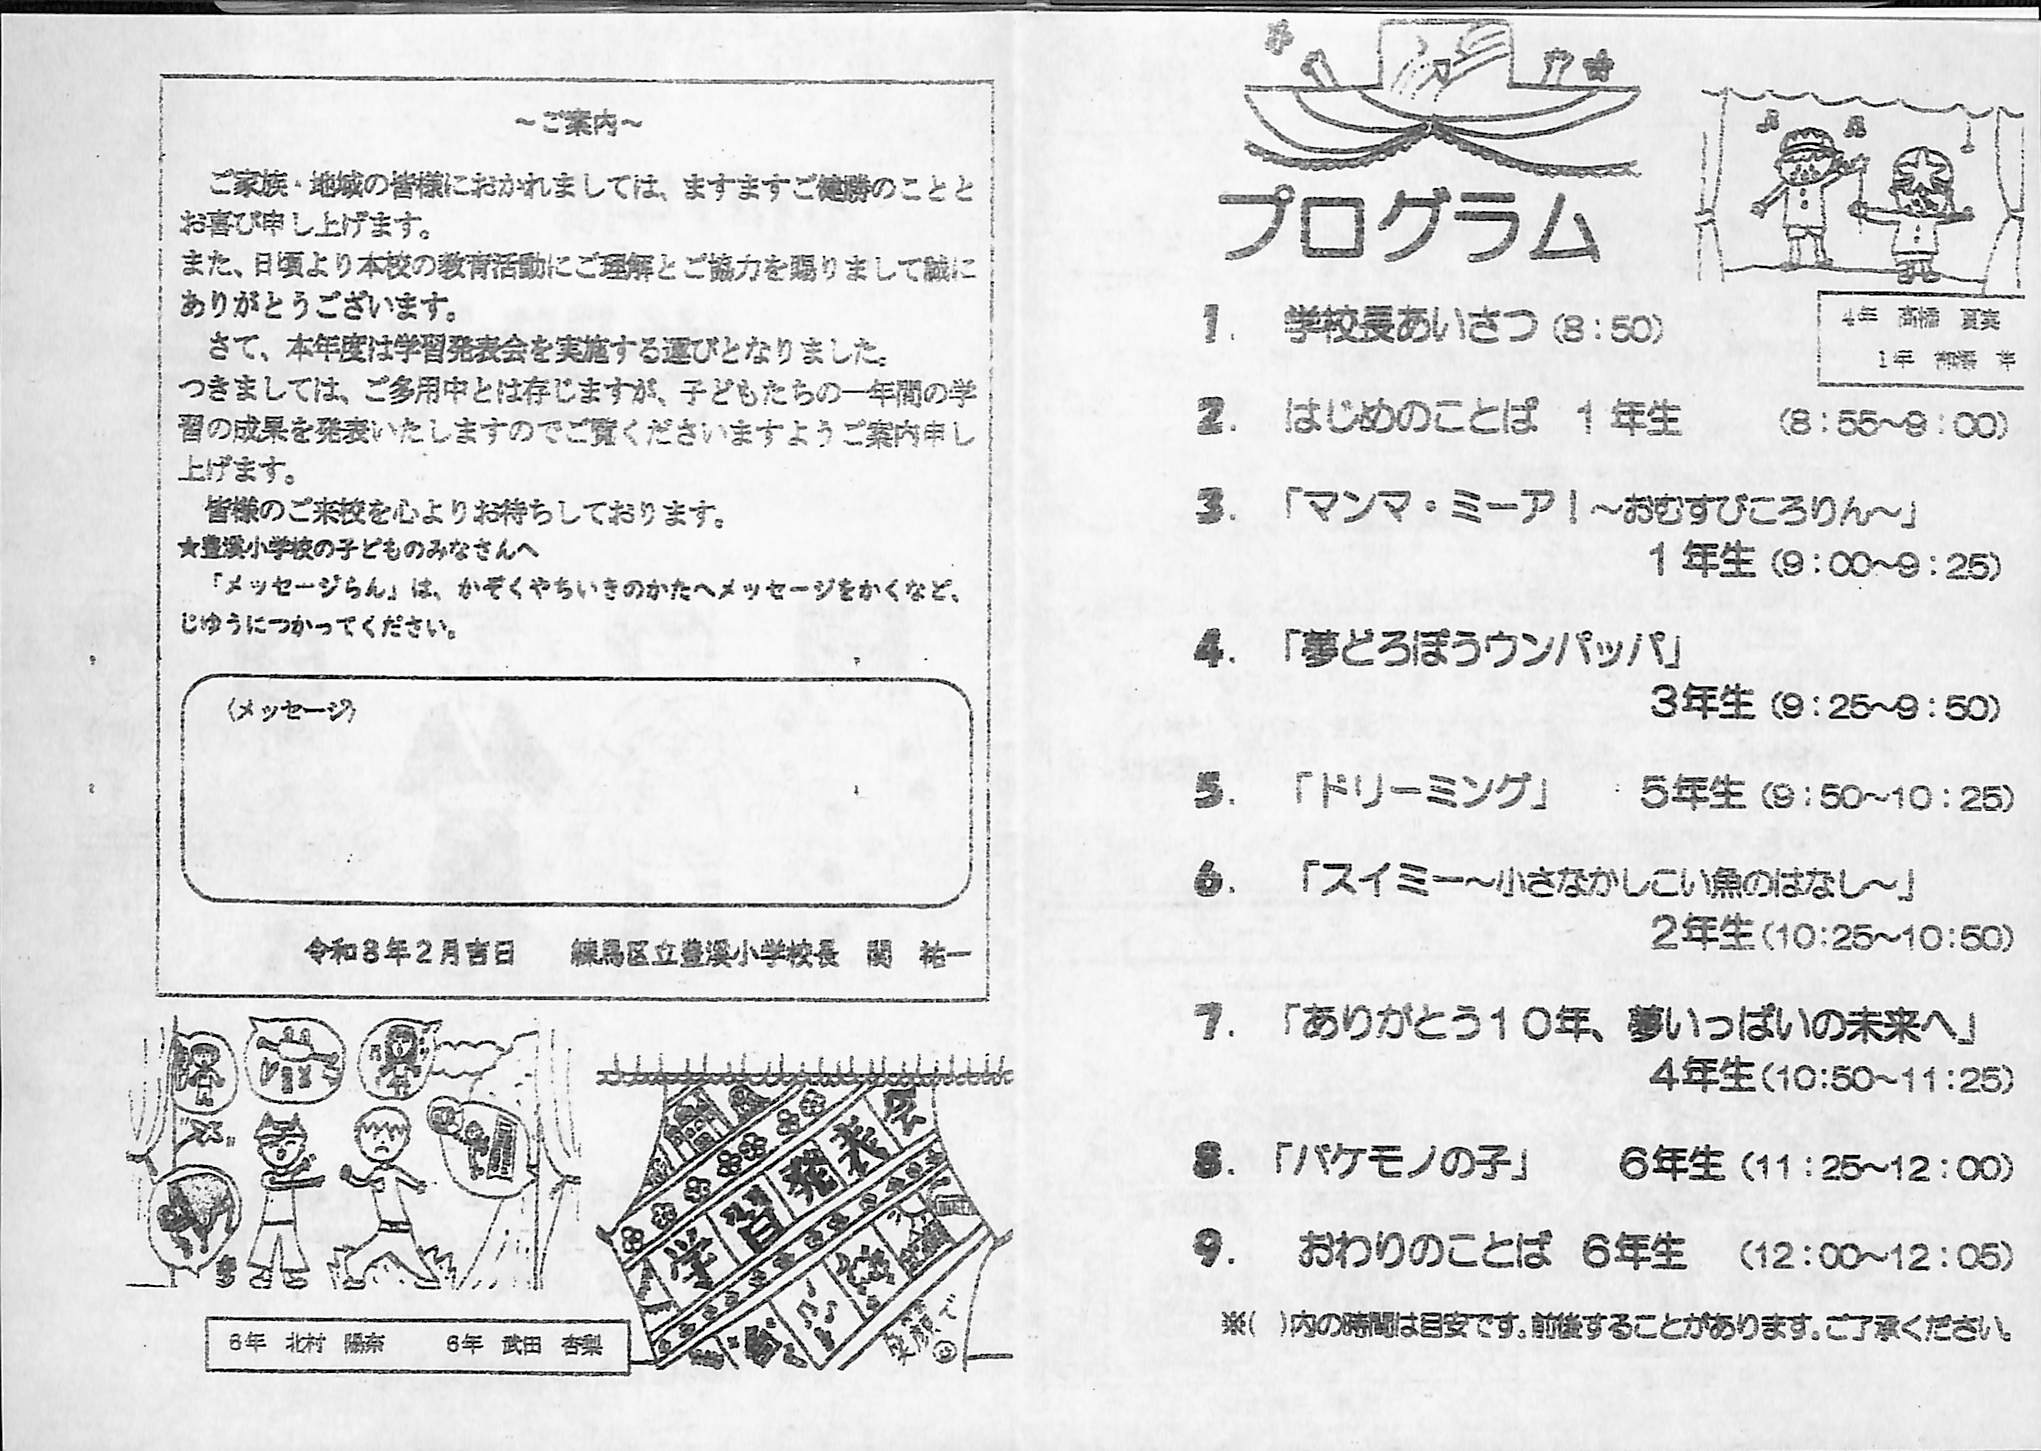 ～ご案内～
ご家族・地域の皆様におかれましては、ますますご健勝のことと
お喜び申し上げます。
また、日頃より本校の教育活動にご理解とご協力を賜りまして誠に
ありがとうございます。
さて、本年度は学習発表会を実施する運びとなりました。
つきましては、ご多用中とは存じますが、子どもたちの一年間の学
習の成果を発表いたしますのでご覧くださいますようご案内申し
上げます。
皆様のご来校を心よりお待ちしております。
★豊溪小学校の子どものみなさんへ
「メッセージらん」は、かぞくやちいきのかたへメッセージをかくなど、
じゆうにつかってください。
（メッセージ）
令和8年2月吉日　練馬区立豊溪小学校長　関　祐一
学習発表会
笑顔で
6年　北村　陽奈　　6年　武田　杏梨
プログラム
4年　高橋　夏実
1年
1.　学校長あいさつ（8：50）
2.　はじめのことば　1年生　（8：55～9：00）
3.　「マンマ・ミーア！～おむすびころりん～」
1年生（9：00～9：25）
4.　「夢どろぼうウンパッパ」
3年生（9：25～9：50）
5.　「ドリーミング」　5年生（9：50～10：25）
6.　「スイミー～小さなかしこい魚のはなし～」
2年生（10：25～10：50）
7.　「ありがとう10年、夢いっぱいの未来へ」
4年生（10：50～11：25）
8.　「バケモノの子」　6年生（11：25～12：00）
9.　おわりのことば　6年生　（12：00～12：05）
※（　）内の時間は目安です。前後することがあります。ご了承ください。